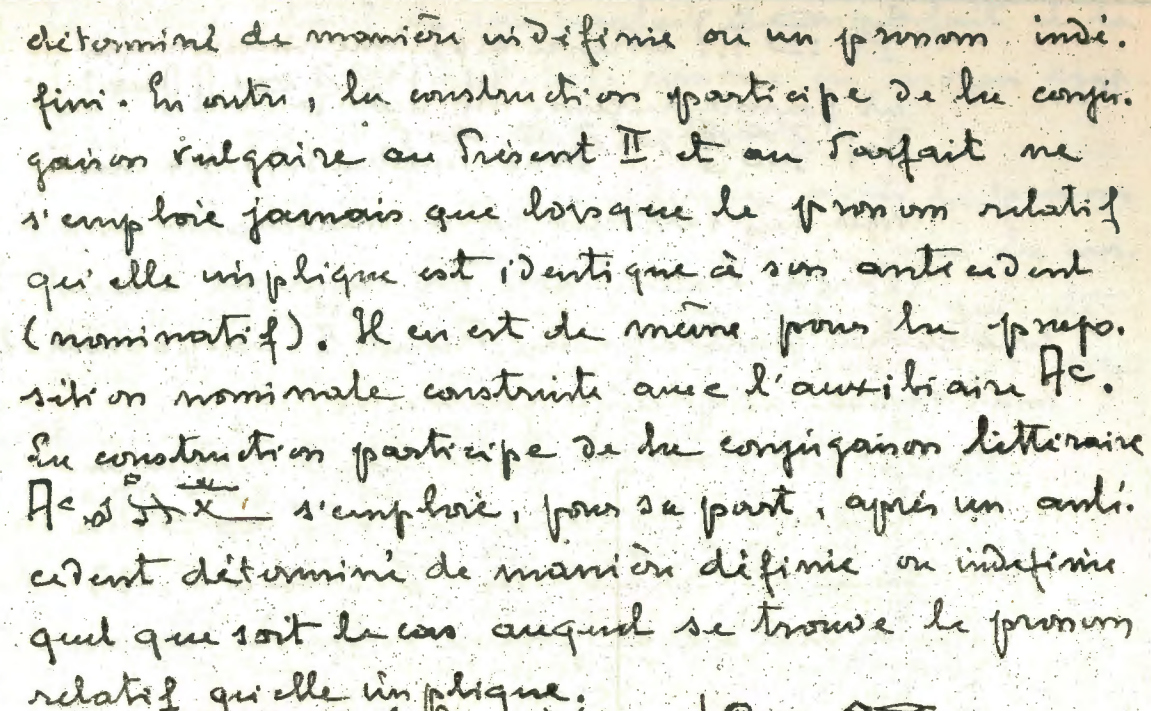 déterminé de manière indéfinie ou un pronom indé-
fini. En outre, la construction participe de la conju-
gaison vulgaire au Présent II et au Parfait ne
s'emploie jamais que lorsque le pronom relatif
qu'elle implique est identique à son antécédent
(nominatif). Il en est de même pour la propo-
sition nominale construite avec l'auxiliaire
La construction participe de la conjugaison littéraire
s'emploie, pour sa part, après un anté-
cédent déterminé de manière définie ou indéfinie
quel que soit le cas auquel se trouve le pronom
relatif qu'elle implique.